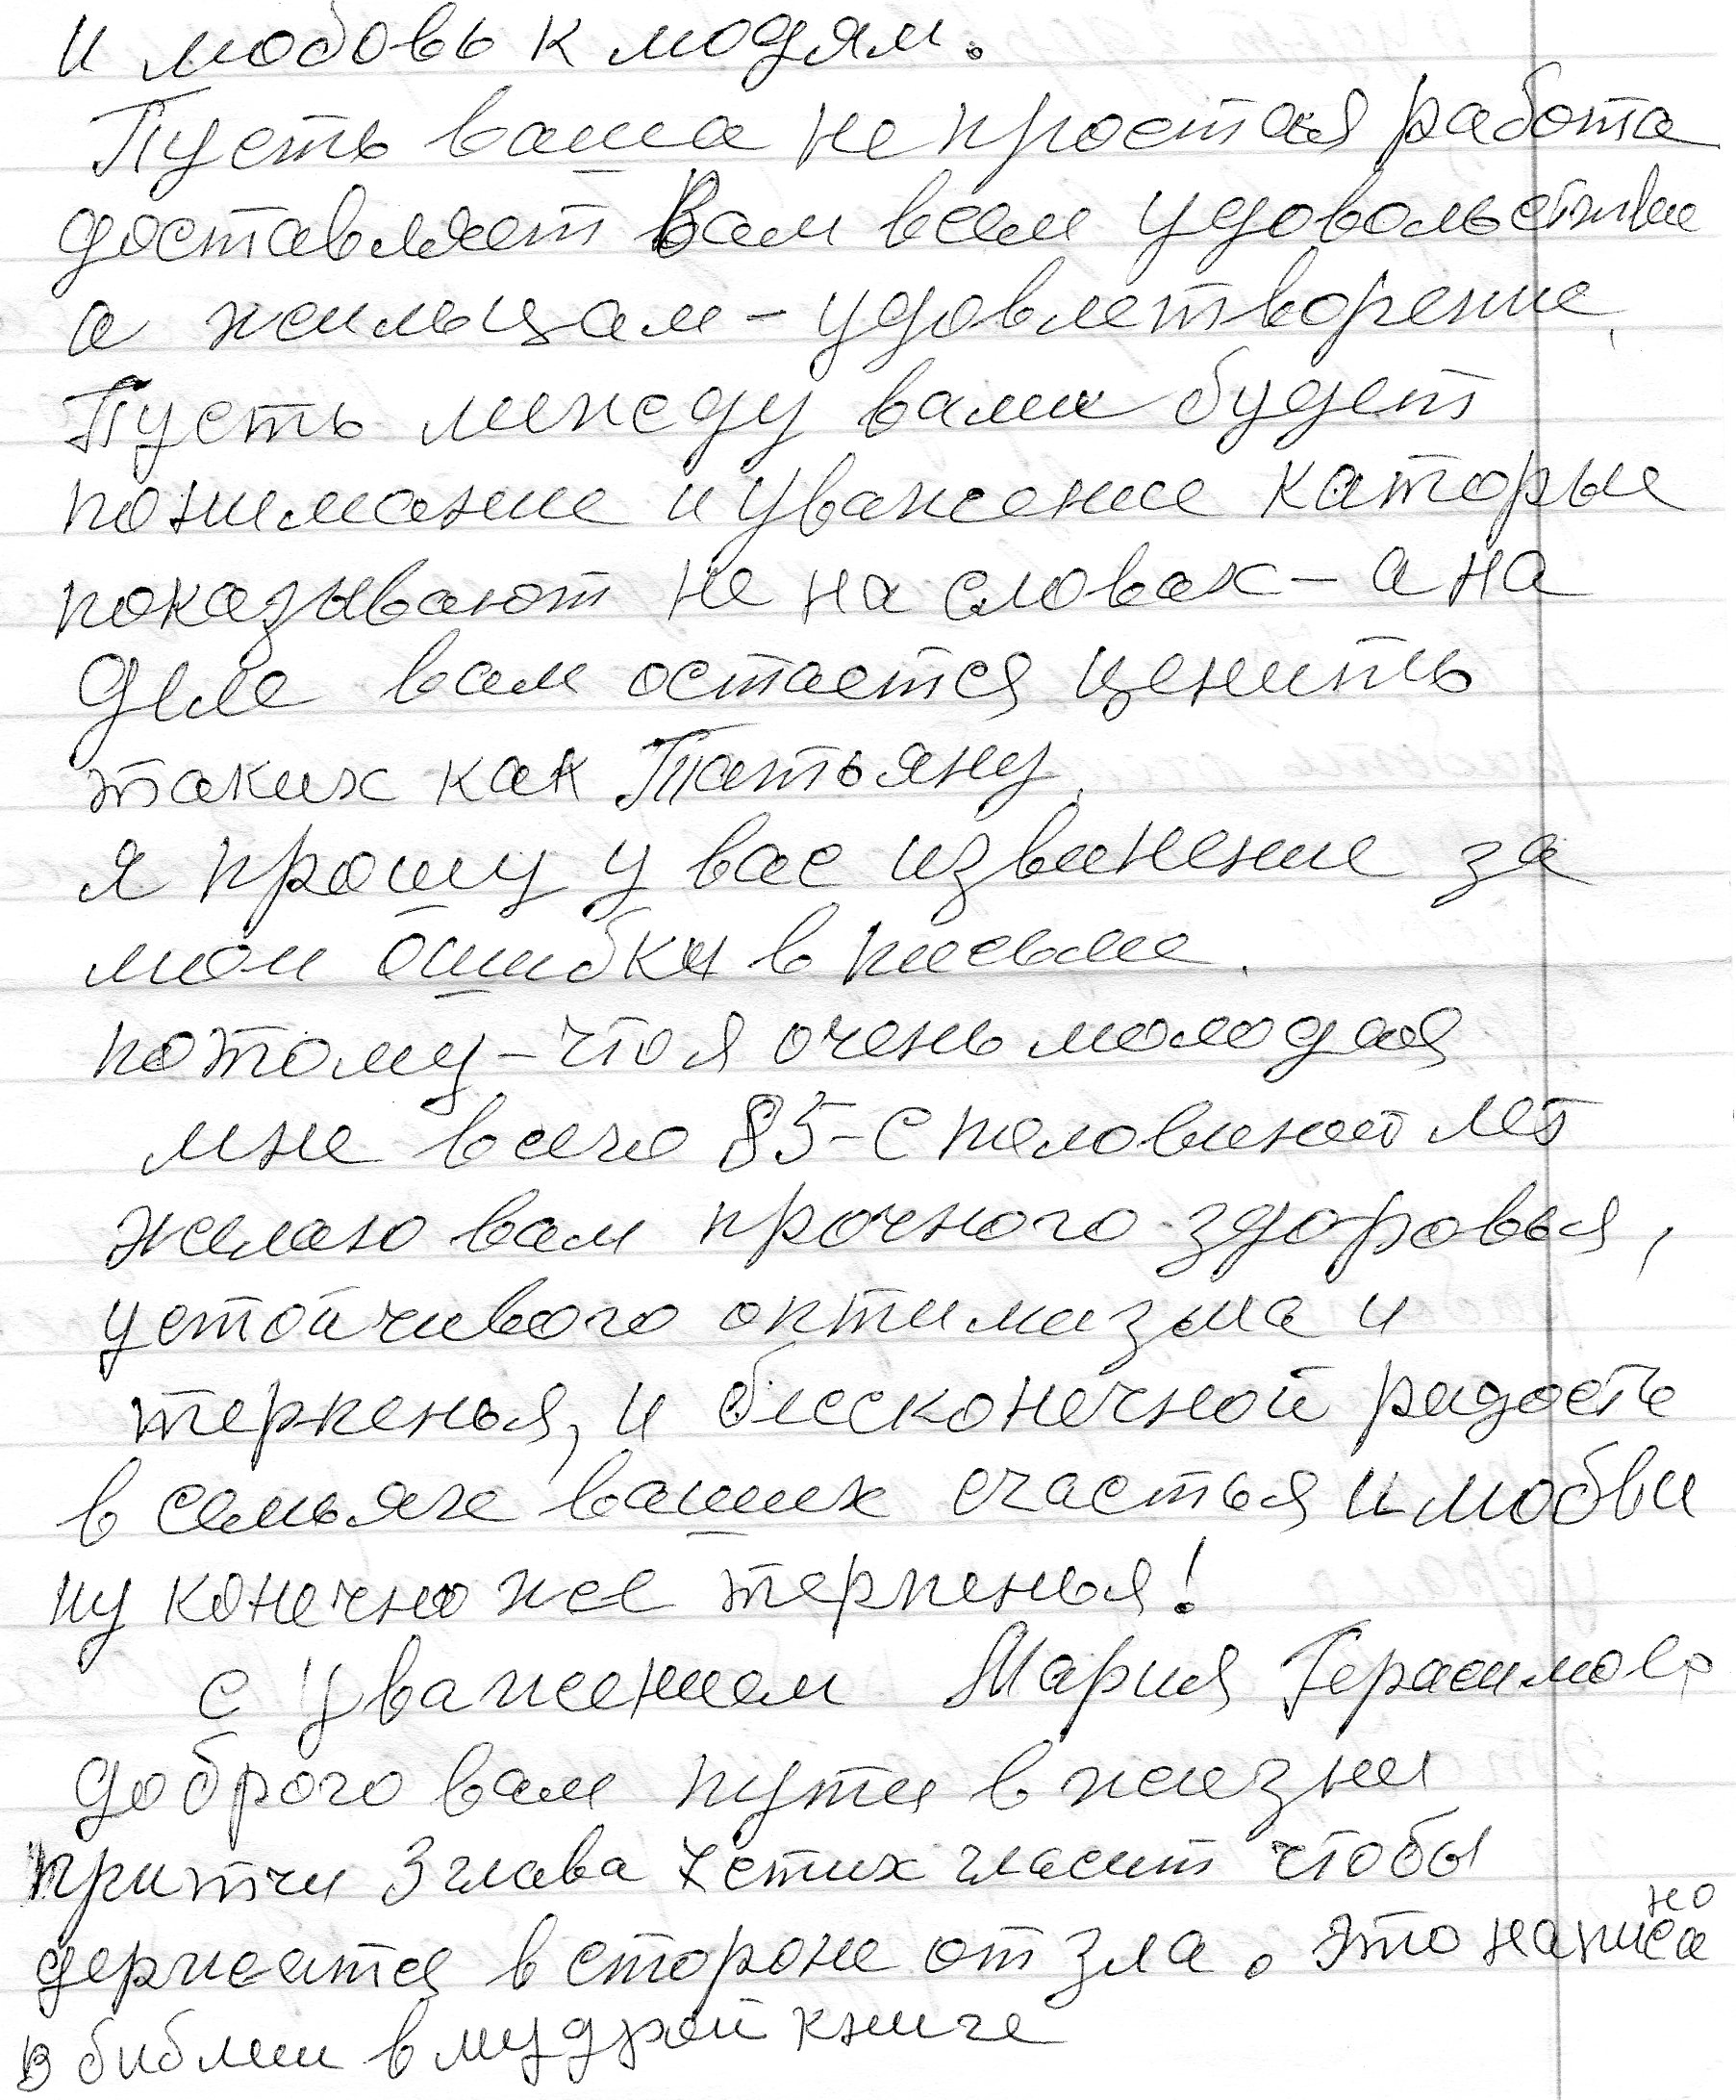 и любовь к людям.
Пусть ваша не простая работа
доставляет Вам всем удовольствие
а жильцам – удовлетворение.
Пусть между вами будет
понимание и уважение каторые
показывают не на словах – а на
деле вам остается ценить
таких как Татьяну.
я прошу у вас извинение за
мои ошибки в письме.
потому – что я очень молодая
мне всего 85 – с половиной лет
желаю вам прочного здоровья,
устойчивого оптимизма и
терпенья, и бесконечной радости
в семьях ваших счастья и любви
ну конечно же терпенья!
с уважением Мария Герасимова
доброго вам пути в жизни
притчи 3 глава 7 стих гласит чтобы
держатся в стороне от зла. это написано
в библии в мудрой книге